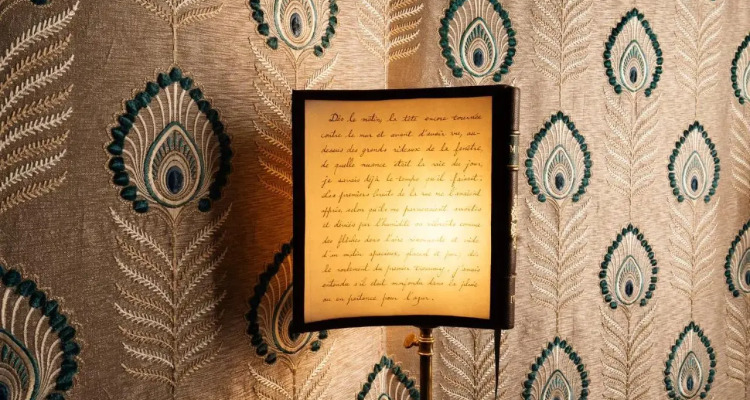 Dès le matin, la tête encore tournée
contre le mur et avant d'avoir vu, au-
dessus des grands rideaux de la fenêtre,
de quelle nuance était la raie du jour,
je savais déjà le temps qu'il faisait.
Les premiers bruits de la rue me l'avaient
appris, selon qu'ils me parvenaient amortis
et déviés par l'humidité ou vibrants comme
des flèches dans l'aire résonnante et vide
d'un matin spacieux, glacial et pur; dès
le roulement du premier tramway, j'avais
entendu s'il était morfondu dans la pluie
ou en partance pour l'azur.
M